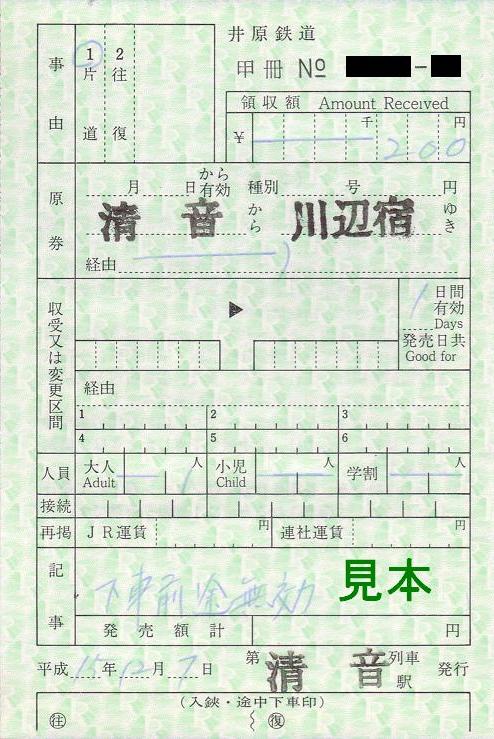 井原鉄道
甲冊 №
事由
1片道
2往復
領収額 Amount Received
¥ 千 円
200
原券
月 日から有効 種別 号 円
清音から川辺宿ゆき
経由
収受又は変更区間
▶
1日間有効
Days
発売日共
Good for
経由
1 2 3
4 5 6
人員 大人 Adult 1人 小児 Child 人 学割 人
接続
再掲 JR運賃 円 連社運賃 円
記事
下車前途無効
見本
発売額計 円
平成15年12月7日 第 清音 列車 駅 発行
(入鋏・途中下車印)
往 復